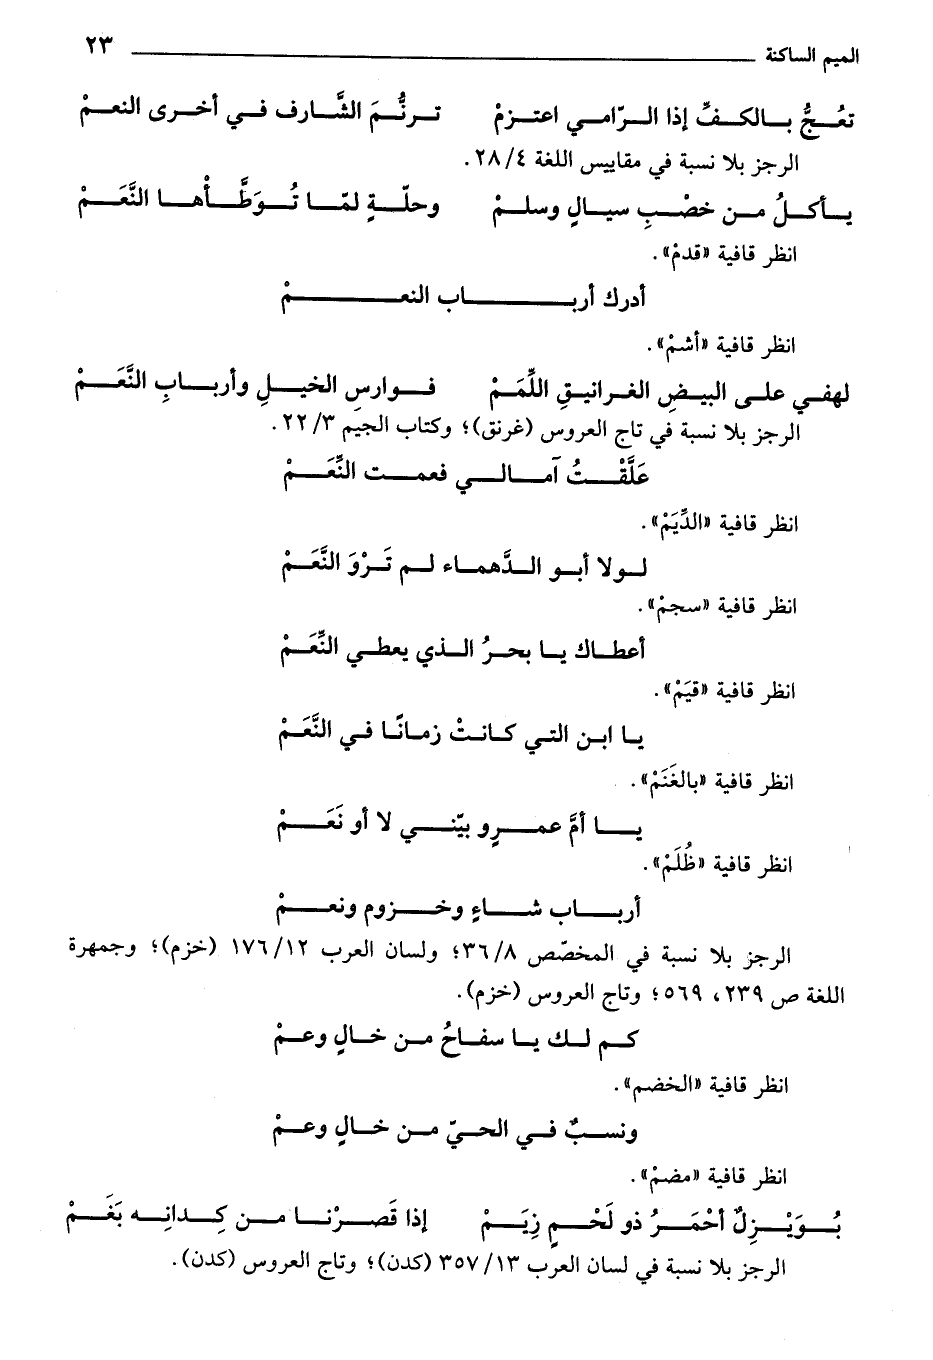 الميم الساكنة ٢٣
تعُجُّ بالكفِّ إذا الرّامي اعتزمْ ترنُّمَ الشَّارف في أخرى النعمْ
الرجز بلا نسبة في مقاييس اللغة ٢٨/٤.
يأكلُ من خصْبٍ سيالٍ وسلمْ وحلّةٍ لمّا تُوَطَّأْها النَّعَمْ
انظر قافية «قدمْ».
أدرك أرباب النعمْ
انظر قافية «أشمْ».
لهفي على البيضِ الغرانيقِ اللِّمَمْ فوارسِ الخيلِ وأربابِ النَّعَمْ
الرجز بلا نسبة في تاج العروس (غرنق)؛ وكتاب الجيم ٢٢/٣.
عَلَّقْتُ آمالي فعمت النِّعَمْ
انظر قافية «الدِّيَمْ».
لولا أبو الدَّهماء لم تَرْوَ النَّعَمْ
انظر قافية «سجمْ».
أعطاك يا بحرُ الذي يعطي النِّعَمْ
انظر قافية «قيَمْ».
يا ابن التي كانتْ زمانًا في النَّعَمْ
انظر قافية «بالغَنَمْ».
يا أمَّ عمرٍو بيّني لا أو نَعَمْ
انظر قافية «ظُلَمْ».
أرباب شاءٍ وخزوم ونعمْ
الرجز بلا نسبة في المخصّص ٣٦/٨؛ ولسان العرب ١٧٦/١٢ (خزم)؛ وجمهرة
اللغة ص ٢٣٩، ٥٦٩؛ وتاج العروس (خزم).
كم لك يا سفاحُ من خالٍ وعمْ
انظر قافية «الخضم».
ونسبٌ في الحيّ من خالٍ وعمْ
انظر قافية «مضمْ».
بُوَيْزِلٌ أحْمَرُ ذو لَحْمٍ زِيَمْ إذا قَصَرْنا من كِدانِه بَغَمْ
الرجز بلا نسبة في لسان العرب ٣٥٧/١٣ (كدن)؛ وتاج العروس (كدن).